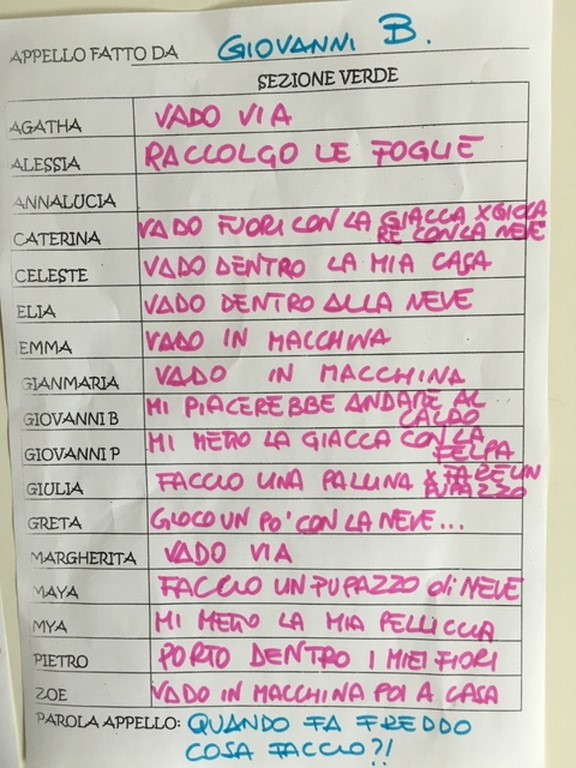 APPELLO FATTO DA GIOVANNI B.
SEZIONE VERDE
AGATHA VADO VIA
ALESSIA RACCOLGO LE FOGLIE
ANNALUCIA
CATERINA VADO FUORI CON LA GIACCA X GIOCA
RE CON LA NEVE
CELESTE VADO DENTRO LA MIA CASA
ELIA VADO DENTRO ALLA NEVE
EMMA VADO IN MACCHINA
GIANMARIA VADO IN MACCHINA
GIOVANNI B MI PIACEREBBE ANDARE AL
CALDO
GIOVANNI P MI METTO LA GIACCA CON LA
FELPA
GIULIA FACCIO UNA PALLINA X FARE UN
PUPAZZO
GRETA GIOCO UN PO' CON LA NEVE...
MARGHERITA VADO VIA
MAYA FACCIO UN PUPAZZO di NEVE
MYA MI METTO LA MIA PELLICCIA
PIETRO PORTO DENTRO I MIEI FIORI
ZOE VADO IN MACCHINA POI A CASA
PAROLA APPELLO: QUANDO FA FREDDO
COSA FACCIO?!